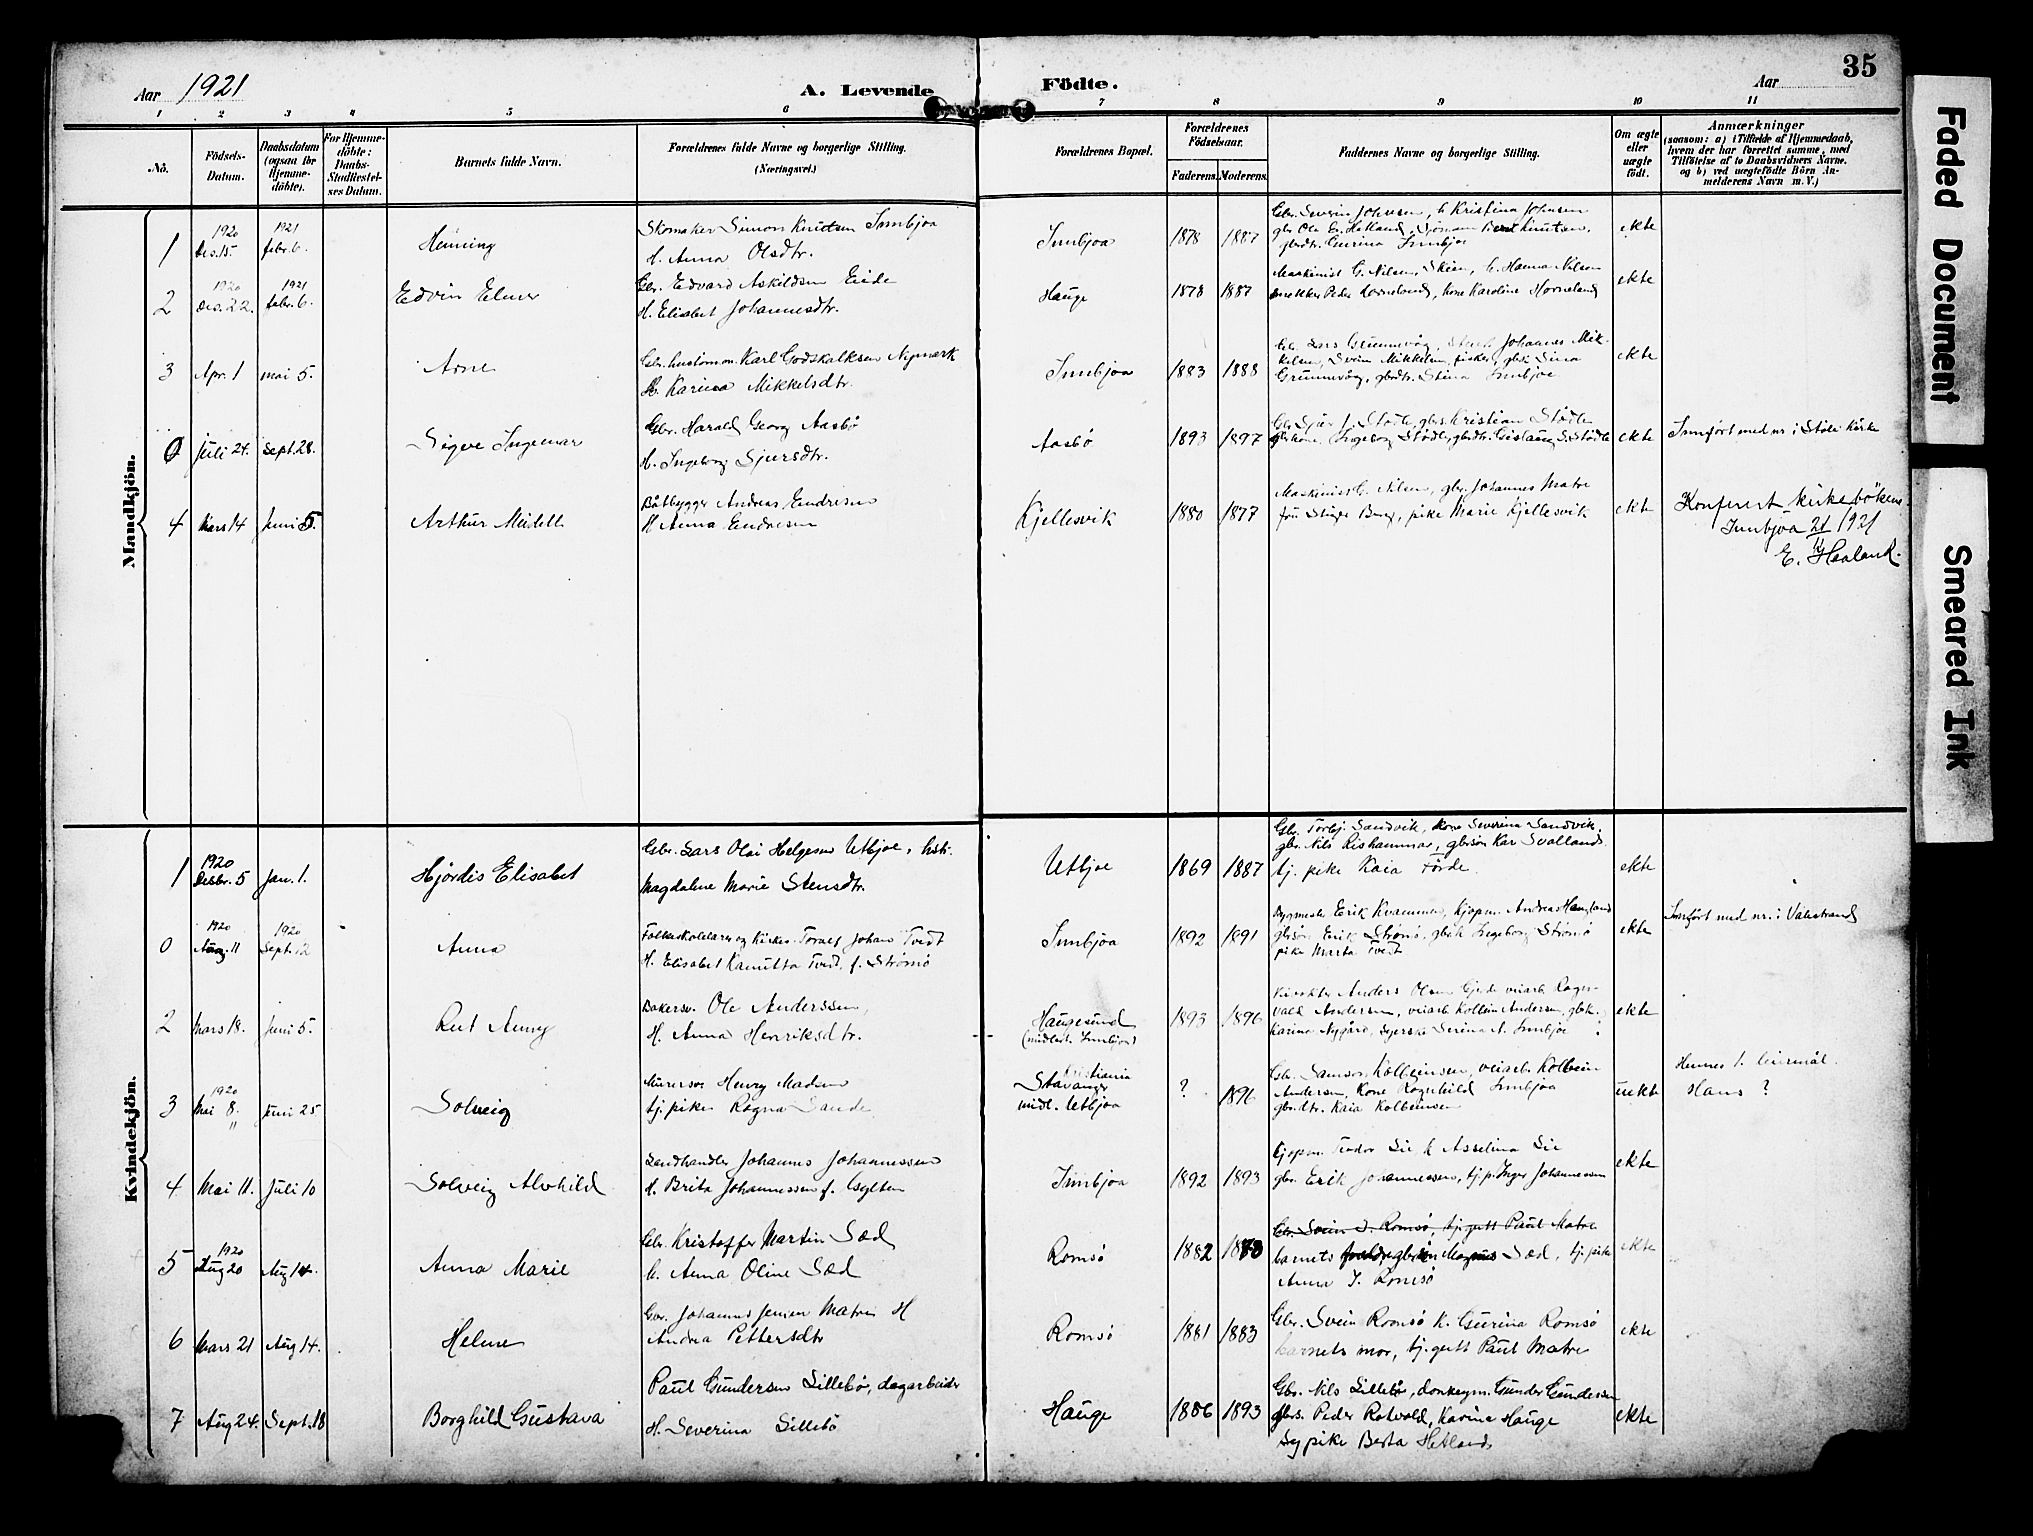 35
Aar 1921 A. Levende Födte. Aar
1 2 3 4 5 6 7 8 9 10 11
No.
Födsels-Datum.
Daabsdatum (ogsaa for Hjemme-döbte).
For Hjemme-döbte: Daabs-Stadfæstel-ses Datum.
Barnets fulde Navn.
Forældrenes fulde Navne og borgerlige Stilling. (Næringsvei.)
Forældrenes Bopæl.
Forældrenes Födselsaar.
Faderens. Moderens.
Faddernes Navne og borgerlige Stilling.
Om ægte eller uægte födt.
Anmærkninger
(saasom: a) i Tilfælde af Hjemmedaab,
hvem der har forrettet samme, med
Tilföielse af to Daabsvidners Navne.
og b) ved uægtefödte Börn An-
melderens Navn m. V.)
Mandkjön.
1 1920 Des. 15. 1921 febr. 6. Henning
Skomaker Simon Knutsen Innbjoa
H. Anna Olsdtr.
Innbjoa 1878 1887
Gbr. Severin Johnsen, h Kristina Johnsen
gbr Ole E. Hetland, Knutsen,
gbrdtr. Gurina Innbjoa
ekte
2 1920 Des. 22. 1921 febr. 6. Edvin Elmer
Gbr. Edvard Askildsen Eide
H. Elisabet Johannesdtr.
Hauge 1878 1887
Maskinist G. Nilsen, Skien, h. Hanna Nilsen
snekker Peder Horneland, kone Karoline Horneland
ekte
3 Apr. 1 mai 5. Arne
Gbr. Karl Godskalksen Nymark
H. Karina Mikkelsdtr.
Innbjoa 1883 1888
Gbr. Lars Grunnevåg, Johannes Mik-
kelsen, Svein Mikkelsen, fisker, gbk Sina
Grunnevåg, gbrdtr. Stina Innbjoa
ekte
0 Juli 24. Sept. 28. Sigve Ingemar
Gbr. Harald Georg Aasbö
H. Ingeborg Sjursdtr.
Aasbö 1893 1897
Gbr Sjur J. Stödle, gbrs Kristian Stödle
Ingeborg Stödle, gbrdtr. Gislaug S. Stödle
ekte
Innfört med nr. i Stöle kirke
4 Mars 14 Juni 5. Arthur Meidell
Båtbygger Andreas Endresen
H Anna Endresen
Kjellesvik 1880 1877
Maskinist G. Nilsen, gbr. Johannes Matre
fru Berg, pike Marie Kjellesvik
ekte
Konferert kirkebökene
Innbjoa 21/11 1921
E. Haaland.
Kvindekjön.
1 1920 Desbr. 5 Jan. 1. Hjördis Elisabet
Gbr. Lars Olai Helgesen Utbjoe, hstr.
Magdalene Marie Stensdtr.
Utbjoe 1869 1887
Gbr. Torbj. Sandvik, kone Severina Sandvik,
gbr. Nils Rishammar, gbrsön Kar Svolland,
tj. pike Kaia Förde
ekte
0 1920 Aug. 11 1920 Sept. 12 Anna
Folkeskolelærer og kirkes. Toralf Johan Tvedt
H. Elisabet Kamitta Tvedt, f. Strömö
Innbjoa 1892 1891
Bygmester Erik Kvammen, kjöpm. Andreas Haugland
gbrsön Erik Strömö, gbrk Ingeborg Strömö
pike Marta Tvedt
ekte
Innfört med nr. i Valestrand
2 Mars 18. Juni 5. Rut Anny
Bakersv. Ole Anderssen,
H. Anna Henriksdtr.
Haugesund
(midlert. Innbjoa)
1893 1896
Anders Olsen Eide Ragn-
vald Andersen, Kolbein Andersen, gbrk.
Karina Nygård, syerske Serina A. Innbjoa
ekte
3 1920 Mai 8. " Juni 25 Solveig
Murersv. Henry Madsen
tj. pike Ragna Sande
Kristiania
Stavanger
midl. Utbjoa
? 1896
Gbr. Samson Kolbeinsen, Kolbein
Andersen, Kone Ragnhild Innbjoa
gbrdtr. Kaia Kolbeinsen
uekte
Hennes 1. leiermål
Hans ?
4 Mai 11. Juli 10 Solveig Alvhild
Landhandler Johannes Johannessen
H. Brita Johannessen f. Gylten
Innbjoa 1892 1893
Kjöpm. Teodor Lie h Asselina Lie
gbr. Erik Johannessen, tj. p. Inger Johannessen
ekte
5 1920 Aug 20 Aug 14. Anna Marie
Gbr. Kristoffer Martin Sæd
h. Anna Oline Sæd
Romsö 1882 1883
Gbr. Svein J. Romsö, tj. gutt Paul Matre
barnets gbrsön Magnus Sæd, tj. pike
Anna J. Romsö
ekte
6 Mars 21 Aug 14. Helene
Gbr. Johannes Jensen Matre H
Andrea Pettersdtr
Romsö 1881 1883
Gbr. Svein Romsö K. Gurina Romsö
barnets mor, tj. gutt Paul Matre
ekte
7 Aug 24. Sept. 18 Borghild Gustava
Paul Gundersen Lillebö, dagarbeider
H. Severina Lillebö
Hauge 1886 1893
Gbr. Nils Lillebö, donkeym. Gunder Gundersen
gbrs. Peder Rotvold, Karina Hauge
Sypike Berta Hetland
ekte
Faded Document
Smeared Ink